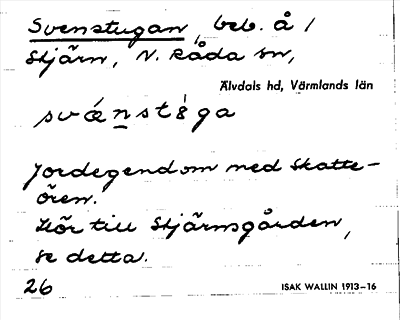 Svenstugan, beb. å /
Stjärn, N. Råda sn,
Älvdals hd, Värmlands län
svǽnstꞌ8ga
Jordegendom med skatte-
ören.
Hör till Stjärnsgården,
se detta.
26
ISAK WALLIN 1913–16